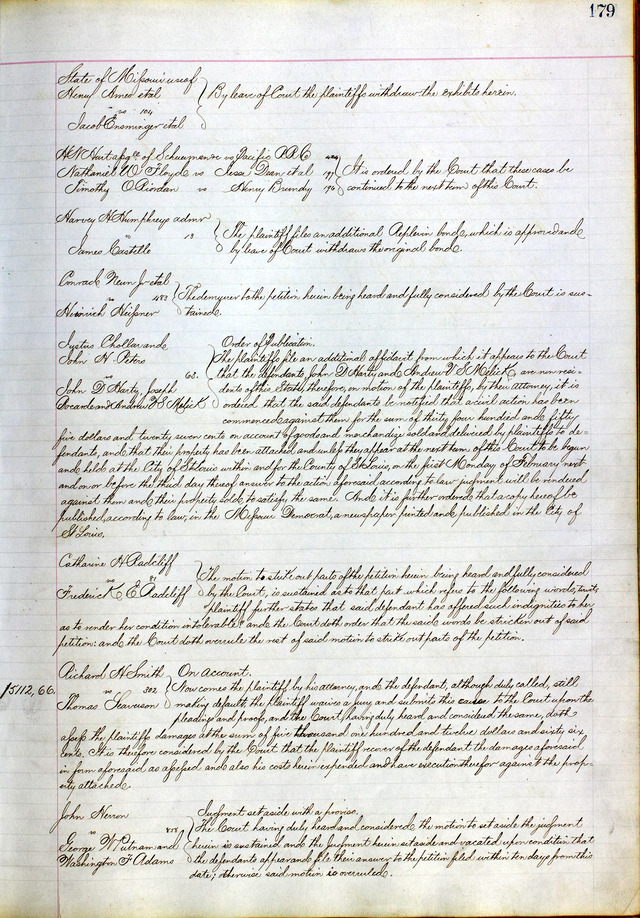 179
State of Missouri use of
Henry Ames etal
vs 104
Jacob Ensminger etal
By leave of Court the plaintiffs withdraw the exhibits herein.
of vs Pacific R.R. Co
Nathaniel W Floyde vs Jesse Dean et al
Timothy O'Riordan vs Henry Brundy
It is ordered by the Court that these cases be
continued to the next term of this Court.
Harvey H Humphreys admr
vs 13
James Costello
The plaintiff files an additional Replevin bond, which is approved and
by leave of Court withdraws the original bond.
Conrad Neun Jr etal
vs 483
Heinrich Meissner
The demurrer to the petition herein being heard and fully considered by the Court is sus-
tained.
Justus Chollar and
John H. Peters
vs 62.
John D Harty, Joseph
and Andrew V S
Order of Publication.
The plaintiffs file an additional affidavit from which it appears to the Court
that the defendants, John D Harty and Andrew V S are non resi-
dents of this State, therefore, on motion of the plaintiffs, by their attorney, it is
ordered that the said defendants be notified that a civil action has been
commenced against them for the sum of thirty four hundred and fifty
five dollars and twenty seven cents on account of goods and merchandize sold and delivered by plaintiffs to de-
fendants, and that their property has been attached, and unless they appear at the next term of this Court to be begun
and held at the City of St Louis within and for the County of St Louis, on the first Monday of February next
and on or before the third day thereof answer to the action aforesaid according to law judgment will be rendered
against them and their property sold to satisfy the same. And it is further ordered that a copy hereof be
published, according to law, in the Missouri Democrat, a newspaper printed and published in the City of
St Louis.
Catharine H Radcliff
vs 81
Frederick E Radcliff
The motion to strike out parts of the petition herein being heard and fully considered
by the Court, is sustained as to that part which refers to the following words, to wit;
"plaintiff further states that said defendant has offered such indignities to her
as to render her condition intolerable" and the Court doth order that the said words be stricken out of said
petition: and the Court doth overrule the rest of said motion to strike out parts of the petition.
Richard H Smith
vs 302
Thomas
5112,66.
On Account.
Now comes the plaintiff by his attorney, and the defendant, although duly called, still
making default, the plaintiff waives a jury and submits this cause to the Court upon the
pleading and proofs, and the Court having duly heard and considered the same, doth
assess the plaintiff damages at the sum of five thousand one hundred and twelve dollars and sixty six
cents. It is therefore considered by the Court that the plaintiff recover of the defendant the damages aforesaid
in form aforesaid as assessed and also his costs herein expended and have execution therefor against the prop-
erty attached.
John Herron
vs
George W Putnam and
Washington F Adams
Judgment set aside with a proviso.
The Court having duly heard and considered the motion to set aside the judgment
herein is sustained and the judgment herein set aside and vacated upon condition that
the defendants appear and file their answer to the petition filed within ten days from this
date; otherwise said motion is overruled.